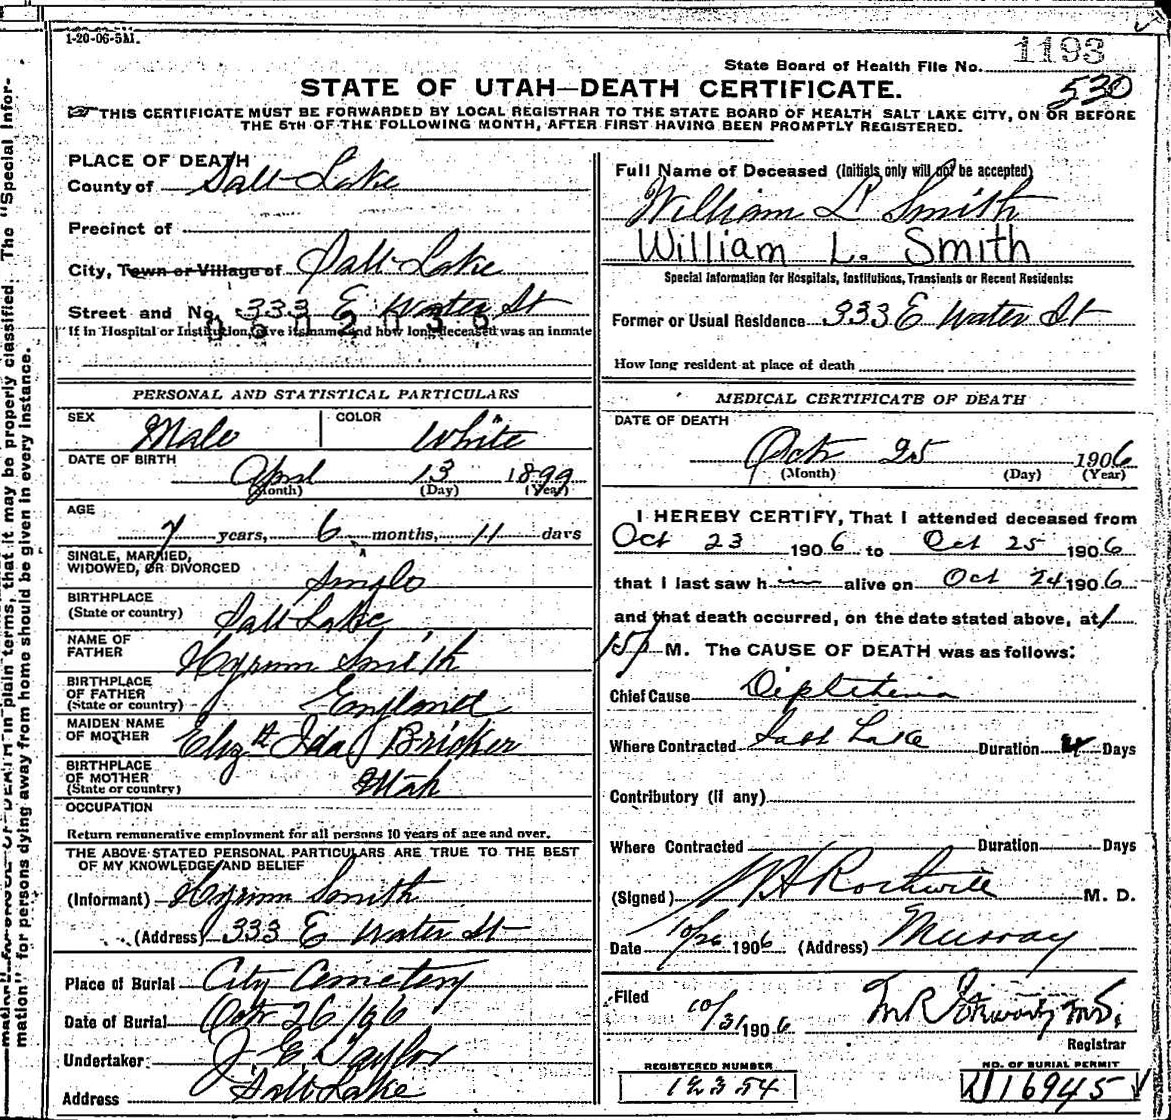 1-20-06-5M.
1193
State Board of Health File No.
530
STATE OF UTAH—DEATH CERTIFICATE.
THIS CERTIFICATE MUST BE FORWARDED BY LOCAL REGISTRAR TO THE STATE BOARD OF HEALTH SALT LAKE CITY, ON OR BEFORE
THE 5TH OF THE FOLLOWING MONTH, AFTER FIRST HAVING BEEN PROMPTLY REGISTERED.
PLACE OF DEATH
County of Salt Lake
Precinct of
City, Town or Village of Salt Lake
Street and No. 333 E Water St
If in Hospital or Institution, give its name and how long deceased was an inmate
PERSONAL AND STATISTICAL PARTICULARS
SEX Male COLOR White
DATE OF BIRTH
April 13 1899
(Month) (Day) (Year)
AGE
7 years, 6 months, 11 days
SINGLE, MARRIED,
WIDOWED, OR DIVORCED Single
BIRTHPLACE
(State or country) Salt Lake
NAME OF
FATHER Hyrum Smith
BIRTHPLACE
OF FATHER
(State or country) England
MAIDEN NAME
OF MOTHER Elizth Ida Bricker
BIRTHPLACE
OF MOTHER
(State or country) Utah
OCCUPATION
Return remunerative employment for all persons 10 years of age and over.
THE ABOVE STATED PERSONAL PARTICULARS ARE TRUE TO THE BEST
OF MY KNOWLEDGE AND BELIEF
(Informant) Hyrum Smith
(Address) 333 E Water St
Place of Burial City Cemetery
Date of Burial Oct 26 1906
Undertaker J. E. Taylor
Address Salt Lake
Full Name of Deceased (Initials only will not be accepted)
William L Smith
William L. Smith
Special Information for Hospitals, Institutions, Transients or Recent Residents:
Former or Usual Residence 333 E Water St
How long resident at place of death
MEDICAL CERTIFICATE OF DEATH
DATE OF DEATH
Oct 25 1906
(Month) (Day) (Year)
I HEREBY CERTIFY, That I attended deceased from
Oct 23 1906 to Oct 25 1906
that I last saw h alive on Oct 24 1906
and that death occurred, on the date stated above, at 1
15 P M. The CAUSE OF DEATH was as follows:
Chief Cause Diphtheria
Where Contracted Salt Lake Duration 4 Days
Contributory (if any)
Where Contracted Duration Days
(Signed) M. D.
Date 10/26 1906 (Address) Murray
Filed
10/31 1906
Registrar
REGISTERED NUMBER
12354
NO. OF BURIAL PERMIT
16945
mation" for persons dying away from home should be given in every instance.
in plain terms, that it may be properly classified. The "Special Infor-